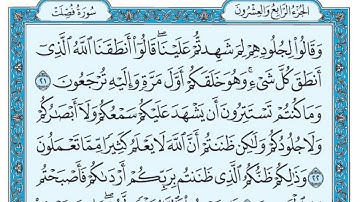 الجزء الرابع والعشرون
سورة فصلت
وَقَالُوا۟ لِجُلُودِهِمْ لِمَ شَهِدتُّمْ عَلَيْنَا ۖ قَالُوٓا۟ أَنطَقَنَا ٱللَّهُ ٱلَّذِىٓ
أَنطَقَ كُلَّ شَىْءٍ وَهُوَ خَلَقَكُمْ أَوَّلَ مَرَّةٍ وَإِلَيْهِ تُرْجَعُونَ ٢١
وَمَا كُنتُمْ تَسْتَتِرُونَ أَن يَشْهَدَ عَلَيْكُمْ سَمْعُكُمْ وَلَآ أَبْصَٰرُكُمْ
وَلَا جُلُودُكُمْ وَلَٰكِن ظَنَنتُمْ أَنَّ ٱللَّهَ لَا يَعْلَمُ كَثِيرًا مِّمَّا تَعْمَلُونَ
٢٢ وَذَٰلِكُمْ ظَنُّكُمُ ٱلَّذِى ظَنَنتُم بِرَبِّكُمْ أَرْدَىٰكُمْ فَأَصْبَحْتُم